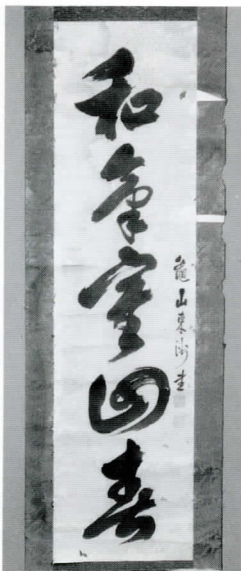 和氣室回春
龜山東書